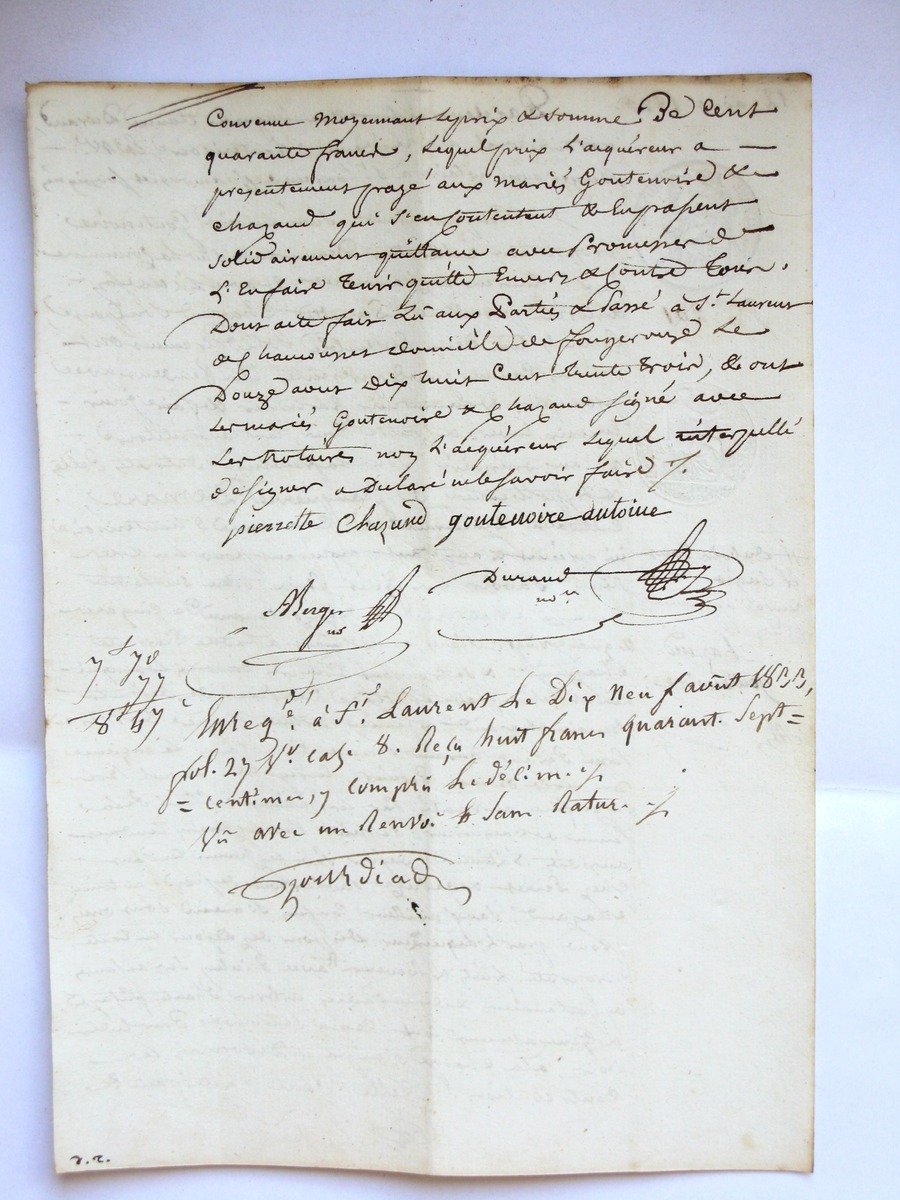 Convenue moyennant le prix & somme De Cent
quarante francs, lequel prix l'acquéreur a —
présentement payé aux mariés Goutenoire &
Chazaud qui s'en Contentent & En passent
solidairement quittance avec Promesse de
L'En faire tenir quitte Envers & Contre Tous.
Dont acte fait Lu aux Parties & Passé à St. Laurent
de Chamousset domicile de fougerouse Le
Douze aout Dix huit Cent trente trois, & ont
Les mariés Goutenoire & Chazaud signé avec
Les Notaires non L'acquéreur Lequel interpellé
de signer a Déclaré ne le savoir faire /.
pierrette Chazaud goutenoire antoine
Durand
nore
Merger
no
7f 70
77
8f 47c
Enregé. à St. Laurent Le Dix Neuf août 1833,
fol. 27 Vo. case 8. Reçu huit francs quarant. Sept=
=centimes, y compris Le décime /.
Vu avec un Renvoi & Sans Ratur. /.
r.r.